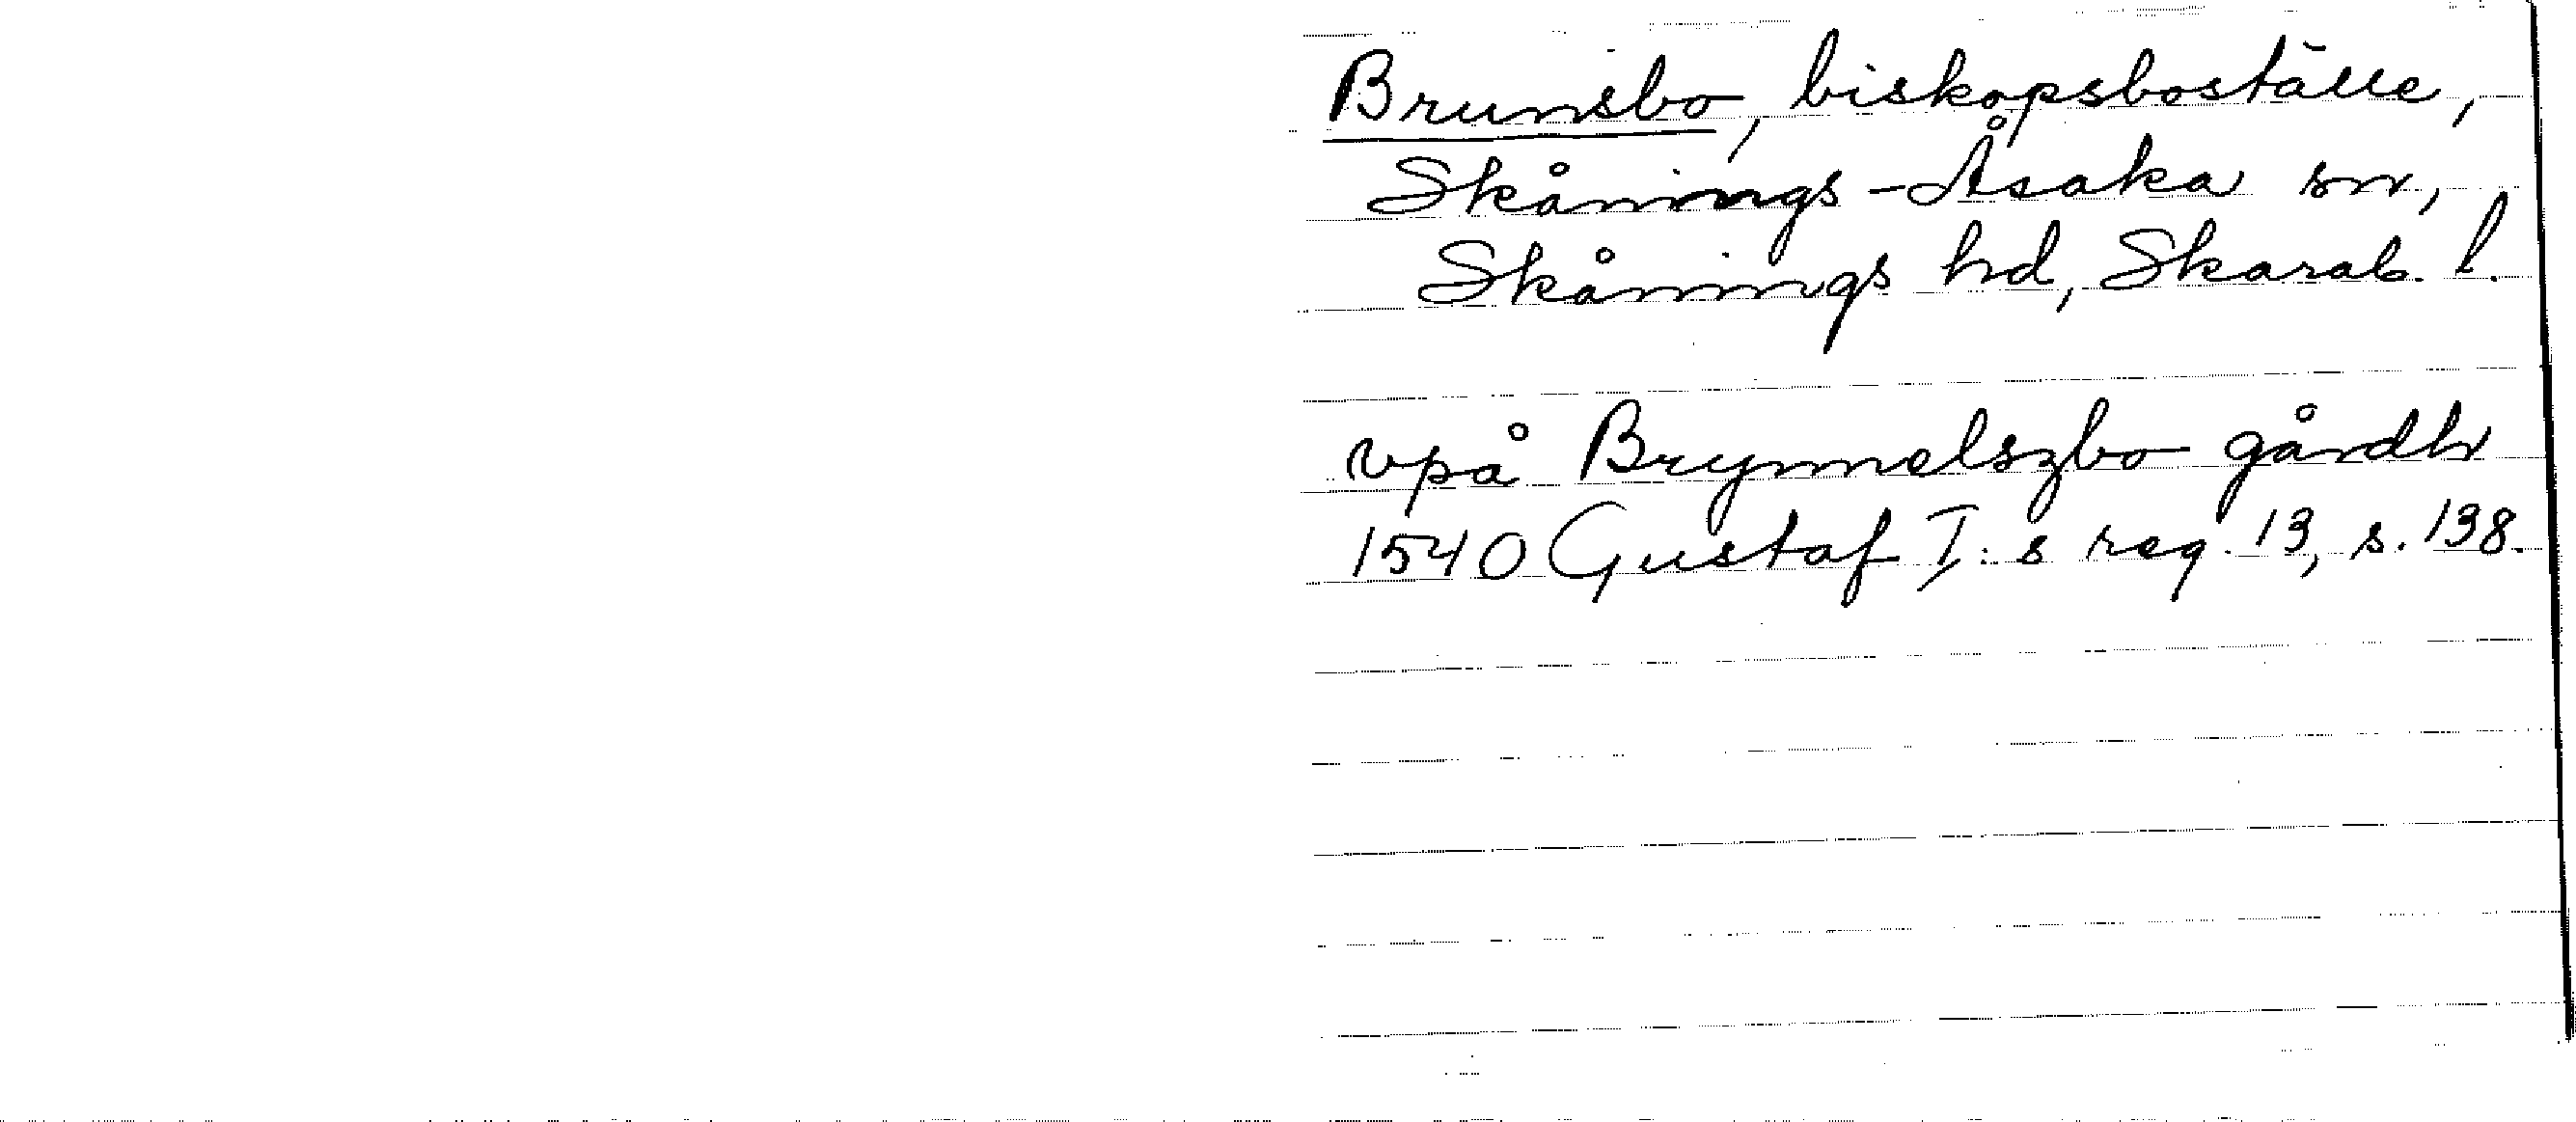 Brunsbo, biskopsboställe,
Skånings-Åsaka sn,
Skånings hd, Skarab. l.
vpå Brynnelszbo gårdh
1540 Gustaf I:s reg. 13, s. 138.